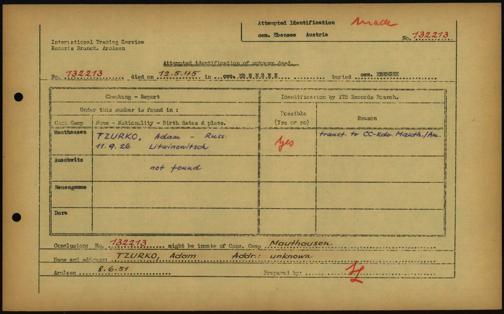 Attempted Identification made
cem. Ebensee Austria
International Tracing Service
Records Branch, Arolsen
No. 132213
Attempted identification of unknown dead.
No. 132213 died on 12.5.45 in cem. EBENSEE buried cem. EBENSEE
Checking - Report Identification by ITS Records Branch.
Under this number is found in :
Conc Camp Name - Nationality - Birth dates & place. Possible (Yes or no) Reason
Mauthausen TZURKO, Adam - Russ yes transf. to CC-Kdo Mauth./Au.
11.9.26 Litwinowitsch
Auschwitz
not found
Neuengamme
Dora
Conclusions: No. 132213 might be inmate of Conc. Camp Mauthausen
Name and address: TZURKO, Adam Addr: unknown
Arolsen 8.6.51 Prepared by: